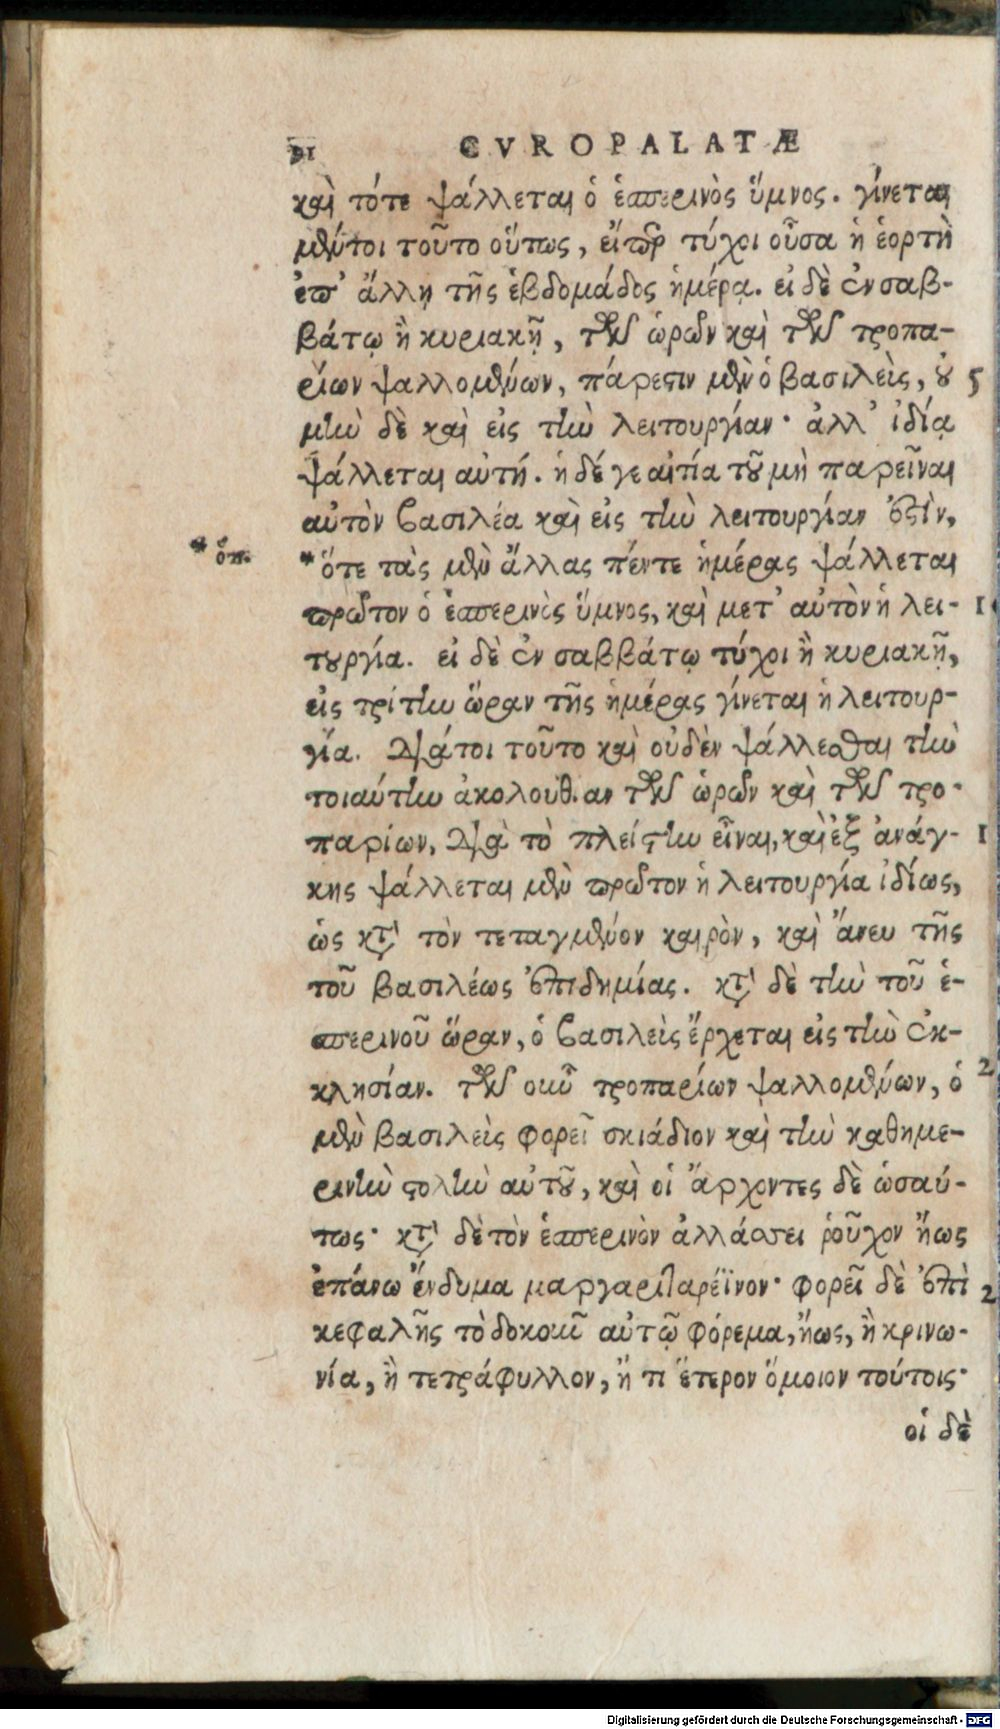 CVROPALATÆ
καὶ τότε ψάλλεται ὁ ἑσπερινὸς ὕμνος. γίνεται
μέντοι τοῦτο οὕτως, εἴπερ τύχοι οὖσα ἡ ἑορτὴ
ἐπ' ἄλλη τῆς ἑβδομάδος ἡμέρᾳ. εἰ δὲ ἐν σαβ-
βάτῳ ἢ κυριακῇ, τῶν ὡρῶν καὶ τῶν τροπα-
ρίων ψαλλομένων, πάρεστιν μὲν ὁ βασιλεὶς, οὐ 5
μὴν δὲ καὶ εἰς τὴν λειτουργίαν· ἀλλ' ἰδίᾳ
ψάλλεται αὐτή. ἡ δέ γε αἰτία τοῦ μὴ παρεῖναι
αὐτὸν βασιλέα καὶ εἰς τὴν λειτουργίαν ἐστὶν,
* ὅτι. *ὅτε τὰς μὲν ἄλλας πέντε ἡμέρας ψάλλεται
πρῶτον ὁ ἑσπερινὸς ὕμνος, καὶ μετ' αὐτὸν ἡ λει- 1
τουργία. εἰ δὲ ἐν σαββάτῳ τύχοι ἢ κυριακῇ,
εἰς τρίτην ὥραν τῆς ἡμέρας γίνεται ἡ λειτουρ-
γία. διάτοι τοῦτο καὶ οὐδὲν ψάλλεσθαι τὴν
τοιαύτην ἀκολουθίαν τῶν ὡρῶν καὶ τῶν τρο-
παρίων, διὰ τὸ πλείστην εἶναι, καὶ ἐξ ἀνάγ- 1
κης ψάλλεται μὲν πρῶτον ἡ λειτουργία ἰδίως,
ὡς κατὰ τὸν τεταγμένον καιρὸν, καὶ ἄνευ τῆς
τοῦ βασιλέως ἐπιδημίας. κατὰ δὲ τὴν τοῦ ἑ-
σπερινοῦ ὥραν, ὁ βασιλεὶς ἔρχεται εἰς τὴν ἐκ-
κλησίαν. τῶν οὖν τροπαρίων ψαλλομένων, ὁ 2
μὲν βασιλεὶς φορεῖ σκιάδιον καὶ τὴν καθημε-
ρινὴν στολὴν αὐτοῦ, καὶ οἱ ἄρχοντες δὲ ὡσαύ-
τως· κατὰ δὲ τὸν ἑσπερινὸν ἀλλάσσει ῥοῦχον ἤως
ἐπάνω ἔνδυμα μαργαριταρέϊνον· φορεῖ δὲ ἐπὶ 2
κεφαλῆς τὸ δοκοῦν αὐτῷ φόρεμα, ἤως, ἢ κρινω-
νία, ἢ τετράφυλλον, ἤ τι ἕτερον ὅμοιον τούτοις·
οἱ δὲ
Digitalisierung gefördert durch die Deutsche Forschungsgemeinschaft - DFG